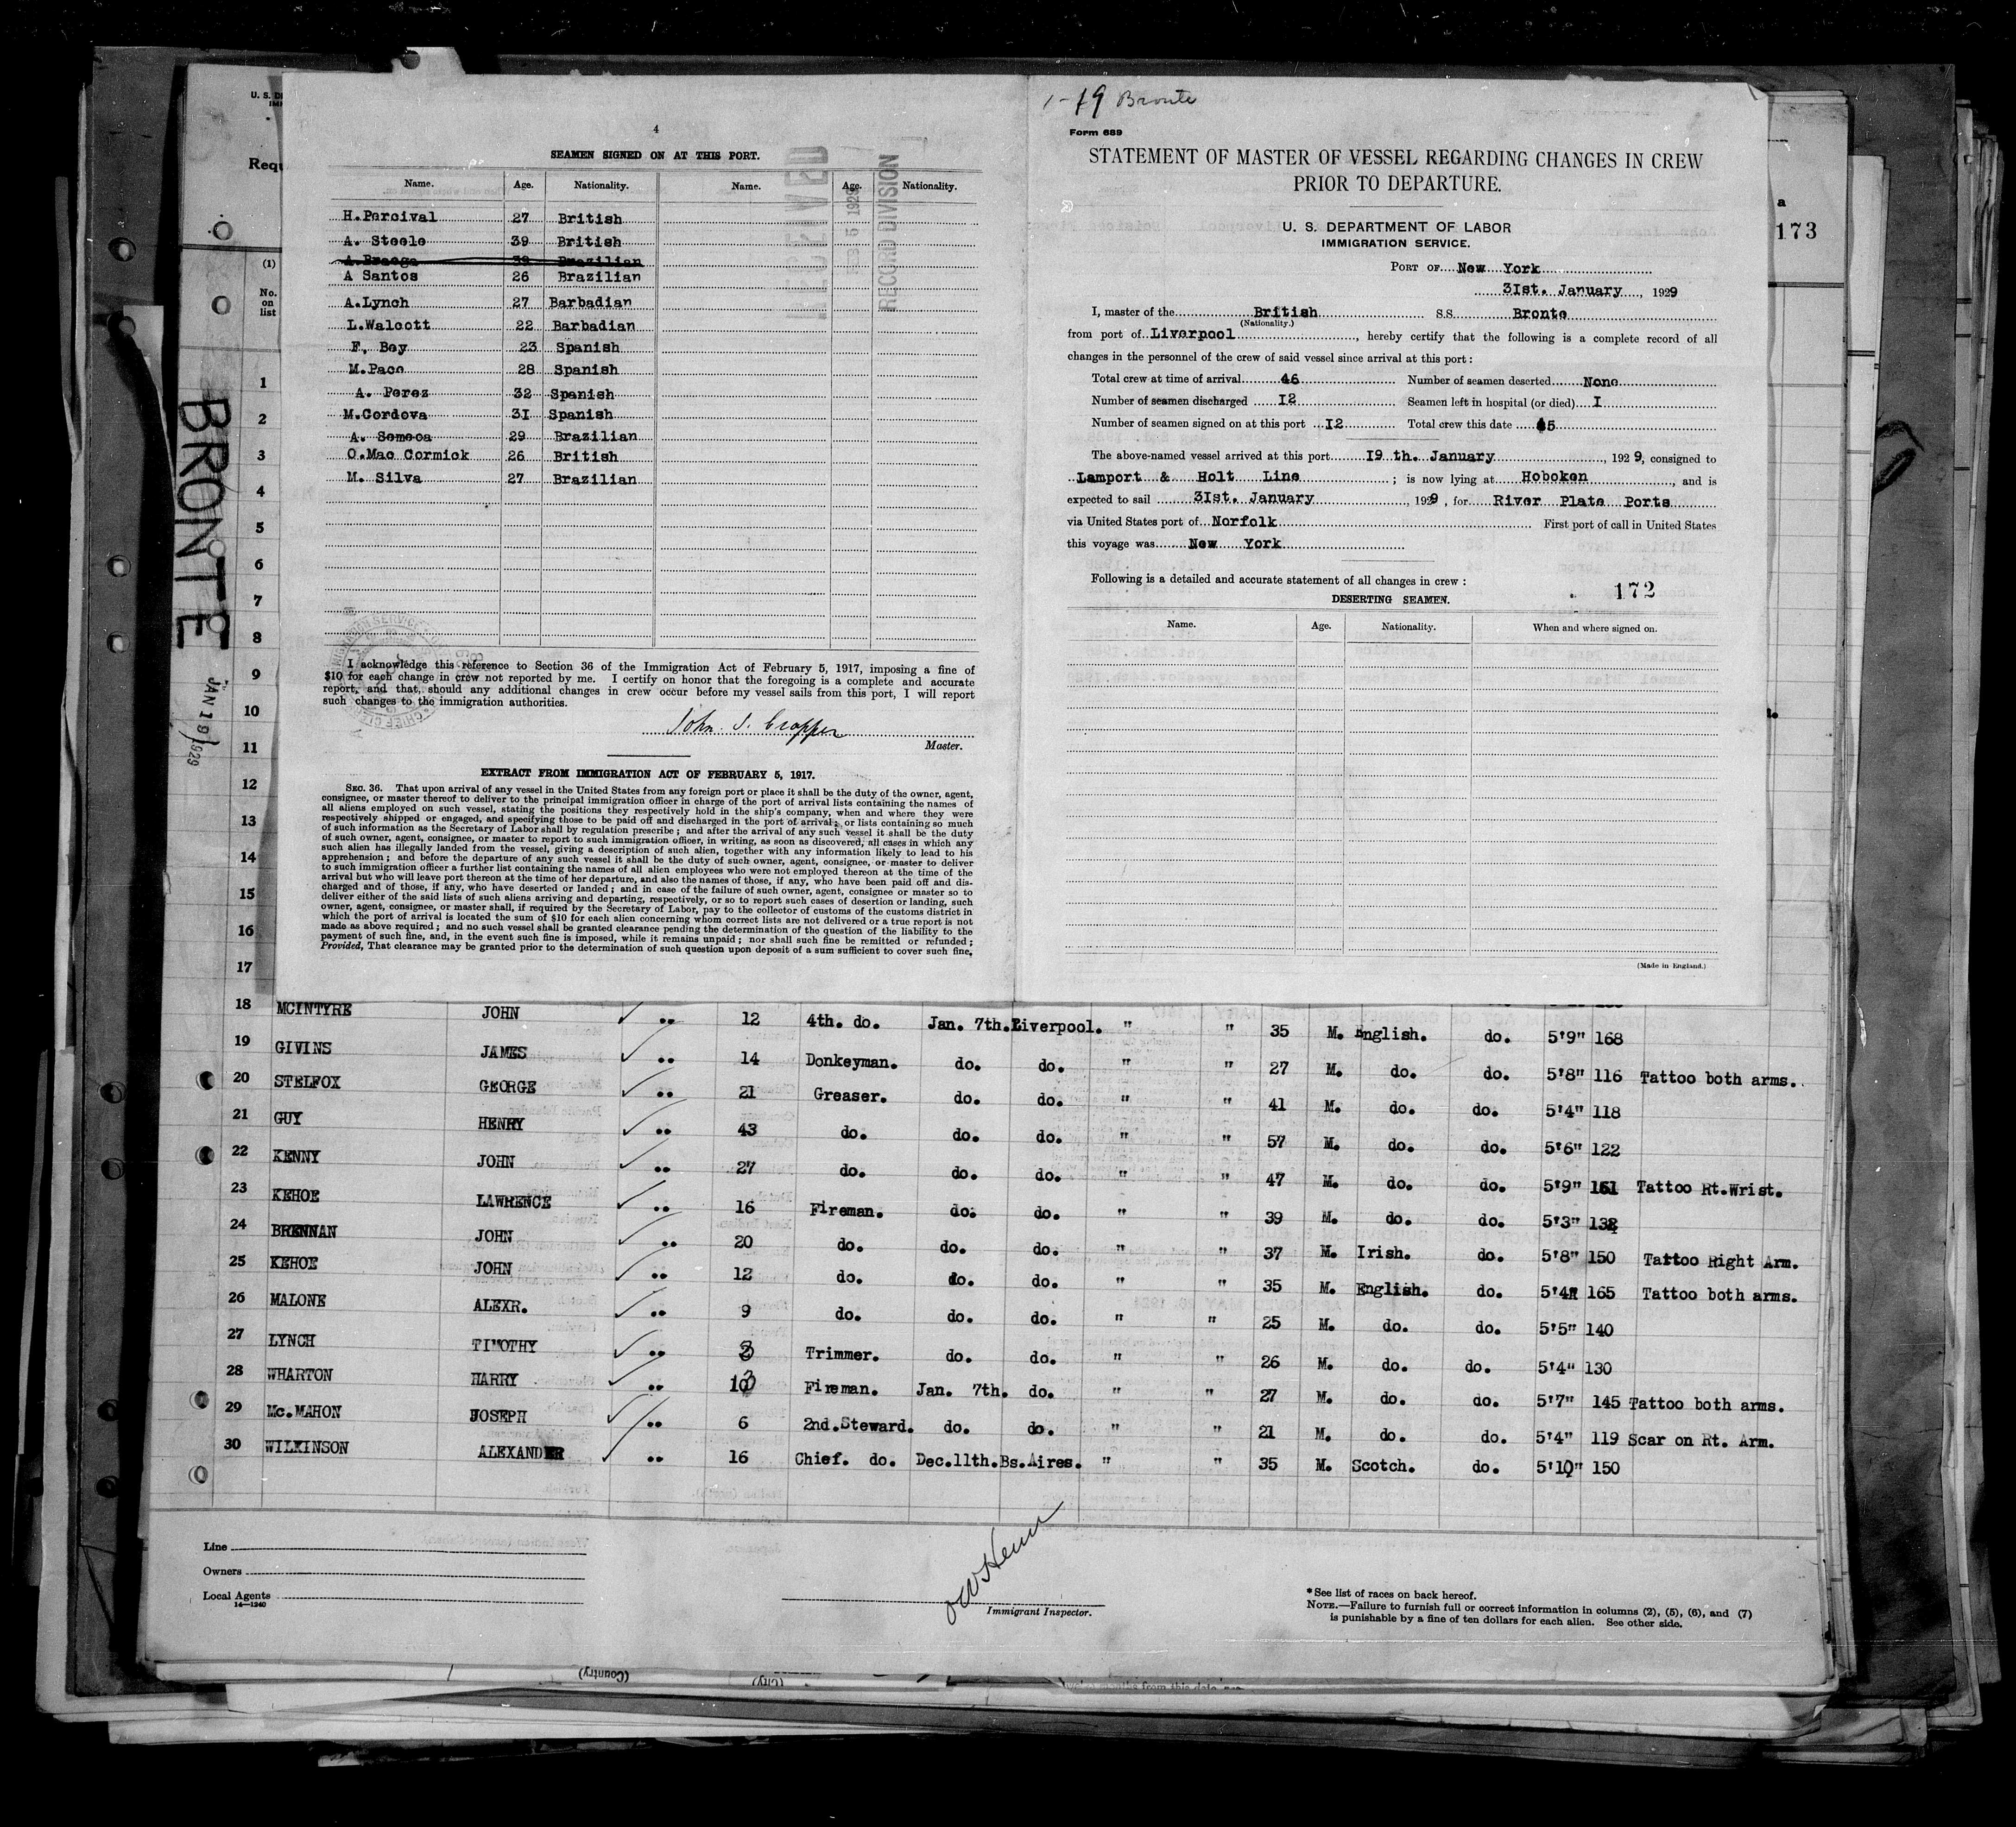 4
SEAMEN SIGNED ON AT THIS PORT.
Name. Age. Nationality. Name. Age. Nationality.
H.Percival 27 British
A. Steele 39 British
A.Braega 39 Brazilian
A Santos 26 Brazilian
A.Lynch 27 Barbadian
L.Walcott 22 Barbadian
F, Bey 23 Spanish
M.Paco 28 Spanish
A. Perez 32 Spanish
M.Cordova 31 Spanish
A. Semeca 29 Brazilian
O.Mac Cormick 26 British
M. Silva 27 Brazilian
RECEIVED
FEB 5 1929
RECORD DIVISION
I acknowledge this reference to Section 36 of the Immigration Act of February 5, 1917, imposing a fine of
$10 for each change in crew not reported by me. I certify on honor that the foregoing is a complete and accurate
report, and that, should any additional changes in crew occur before my vessel sails from this port, I will report
such changes to the immigration authorities.
John. S. Cropper
Master.
EXTRACT FROM IMMIGRATION ACT OF FEBRUARY 5, 1917.
SEC. 36. That upon arrival of any vessel in the United States from any foreign port or place it shall be the duty of the owner, agent,
consignee, or master thereof to deliver to the principal immigration officer in charge of the port of arrival lists containing the names of
all aliens employed on such vessel, stating the positions they respectively hold in the ship's company, when and where they were
respectively shipped or engaged, and specifying those to be paid off and discharged in the port of arrival; or lists containing so much
of such information as the Secretary of Labor shall by regulation prescribe; and after the arrival of any such vessel it shall be the duty
of such owner, agent, consignee, or master to report to such immigration officer, in writing, as soon as discovered, all cases in which any
such alien has illegally landed from the vessel, giving a description of such alien, together with any information likely to lead to his
apprehension; and before the departure of any such vessel it shall be the duty of such owner, agent, consignee, or master to deliver
to such immigration officer a further list containing the names of all alien employees who were not employed thereon at the time of the
arrival but who will leave port thereon at the time of her departure, and also the names of those, if any, who have been paid off and dis-
charged and of those, if any, who have deserted or landed; and in case of the failure of such owner, agent, consignee or master so to
deliver either of the said lists of such aliens arriving and departing, respectively, or so to report such cases of desertion or landing, such
owner, agent, consignee, or master shall, if required by the Secretary of Labor, pay to the collector of customs of the customs district in
which the port of arrival is located the sum of $10 for each alien concerning whom correct lists are not delivered or a true report is not
made as above required; and no such vessel shall be granted clearance pending the determination of the question of the liability to the
payment of such fine, and, in the event such fine is imposed, while it remains unpaid; nor shall such fine be remitted or refunded;
Provided, That clearance may be granted prior to the determination of such question upon deposit of a sum sufficient to cover such fine,
1-19 Bronte
Form 689
STATEMENT OF MASTER OF VESSEL REGARDING CHANGES IN CREW
PRIOR TO DEPARTURE.
U. S. DEPARTMENT OF LABOR
IMMIGRATION SERVICE.
PORT OF New York
3Ist. January, 1929
I, master of the British S.S. Bronte
(Nationality.)
from port of Liverpool, hereby certify that the following is a complete record of all
changes in the personnel of the crew of said vessel since arrival at this port:
Total crew at time of arrival 46 Number of seamen deserted None
Number of seamen discharged I2 Seamen left in hospital (or died) I
Number of seamen signed on at this port I2 Total crew this date 45
The above-named vessel arrived at this port I9 th. January, 1929, consigned to
Lamport & Holt Line; is now lying at Hoboken, and is
expected to sail 3Ist. January, 1929, for River Plate Ports
via United States port of Norfolk First port of call in United States
this voyage was New York
Following is a detailed and accurate statement of all changes in crew:
172
DESERTING SEAMEN.
Name. Age. Nationality. When and where signed on.
(Made in England.)
a
173
U. S. DE
Requ
(1)
No.
on
list
BRONTE
JAN 19 1929
1
2
3
4
5
6
7
8
9
10
11
12
13
14
15
16
17
18 MCINTYRE JOHN " 12 4th. do. Jan. 7th. Liverpool. " " 35 M. English. do. 5'9" 168
19 GIVINS JAMES " 14 Donkeyman. do. do. " " 27 M. do. do. 5'8" 116 Tattoo both arms.
20 STELFOX GEORGE " 21 Greaser. do. do. " " 41 M. do. do. 5'4" 118
21 GUY HENRY " 43 do. do. do. " " 57 M. do. do. 5'6" 122
22 KENNY JOHN " 27 do. do. do. " " 47 M. do. do. 5'9" 161 Tattoo Rt.Wrist.
23 KEHOE LAWRENCE " 16 Fireman. do. do. " " 39 M. do. do. 5'3"
24 BRENNAN JOHN " 20 do. do. do. " " 37 M. Irish. do. 5'8" 150 Tattoo Right Arm.
25 KEHOE JOHN " 12 do. do. do. " " 35 M. English. do. 5'4" 165 Tattoo both arms.
26 MALONE ALEXR. " 9 do. do. do. " " 25 M. do. do. 5'5" 140
27 LYNCH TIMOTHY " Trimmer. do. do. " " 26 M. do. do. 5'4" 130
28 WHARTON HARRY " Fireman. Jan. 7th. do. " " 27 M. do. do. 5'7" 145 Tattoo both arms.
29 Mc.MAHON JOSEPH " 6 2nd.Steward. do. do. " " 21 M. do. do. 5'4" 119 Scar on Rt. Arm.
30 WILKINSON ALEXANDER " 16 Chief. do. Dec.11th. Bs.Aires. " " 35 M. Scotch. do. 5'10" 150
Line
Owners
Local Agents
14—1240
Immigrant Inspector.
* See list of races on back hereof.
NOTE.—Failure to furnish full or correct information in columns (2), (5), (6), and (7)
is punishable by a fine of ten dollars for each alien. See other side.
(Country)
(City)